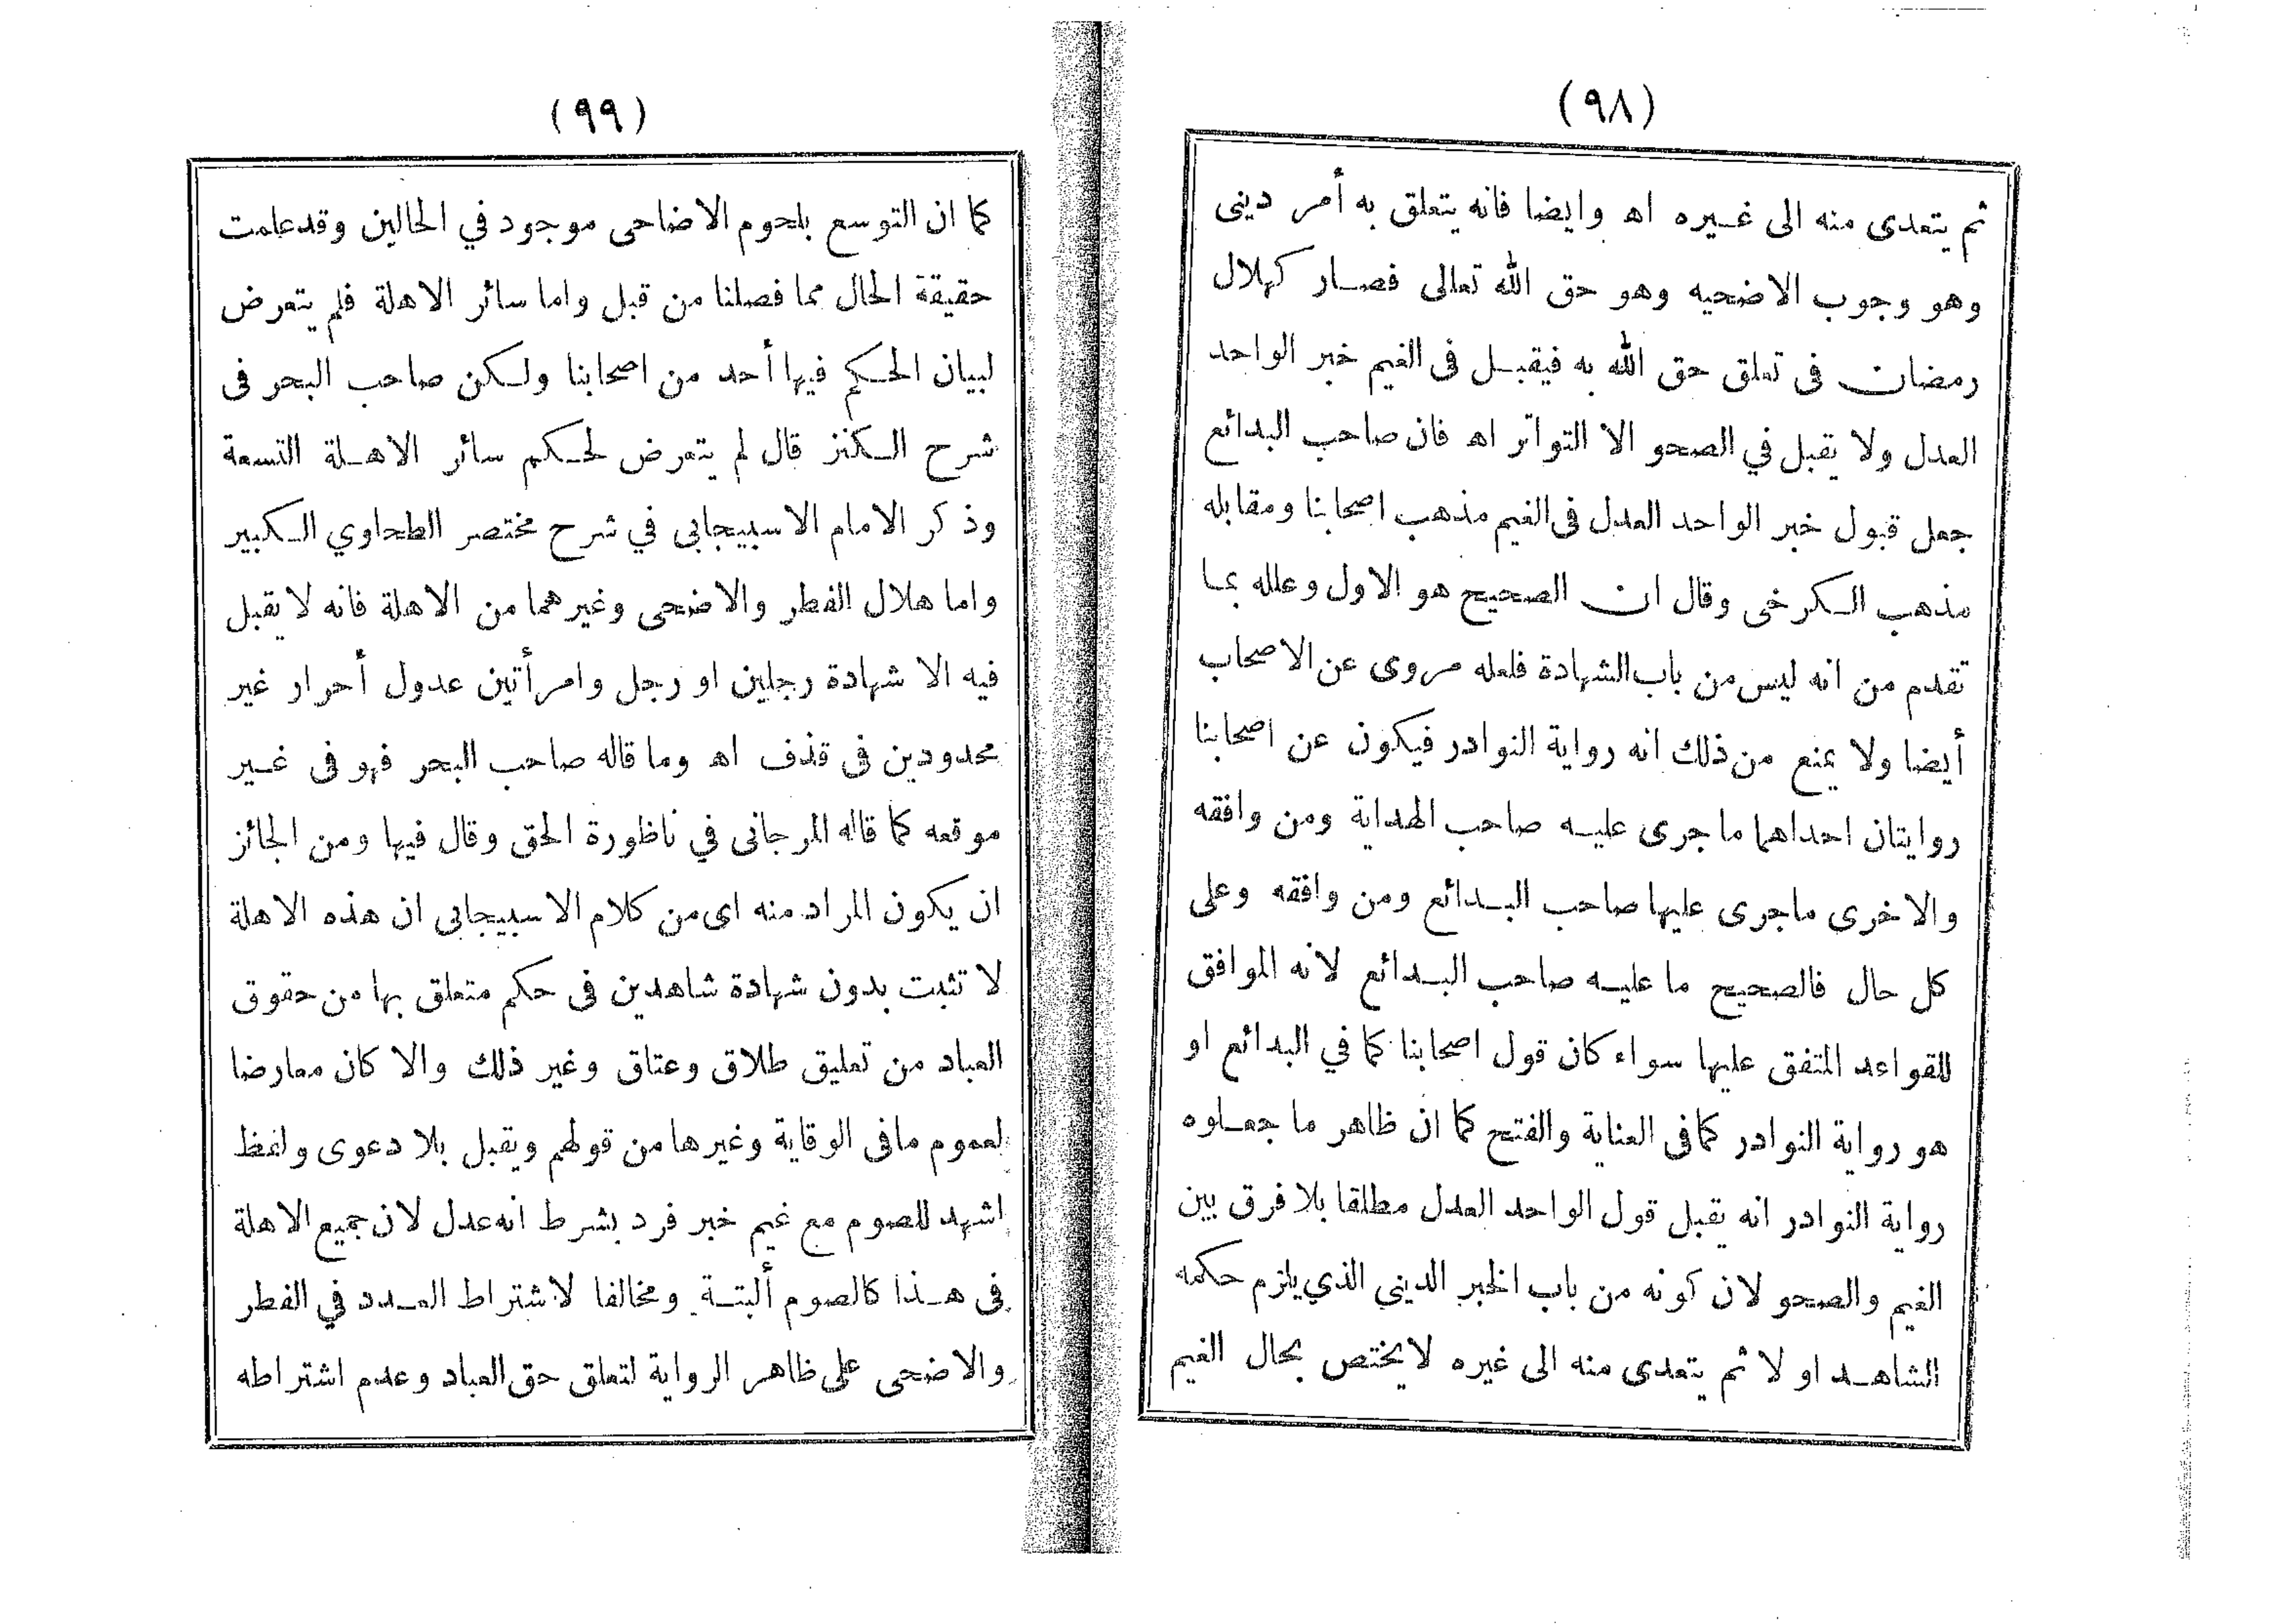 (٩٨)
ثم يتعدى منه الى غيره اه وايضا فانه يتعلق به أمر دينى
وهو وجوب الاضحيه وهو حق الله تعالى فصار كهلال
رمضان فى تعلق حق الله به فيقبل فى الغيم خبر الواحد
العدل ولا يقبل في الصحو الا التواتر اه فان صاحب البدائع
جعل قبول خبر الواحد العدل فى الغيم مذهب اصحابنا ومقابله
مذهب الكرخى وقال ان الصحيح هو الاول وعلله بما
تقدم من انه ليس من باب الشهادة فلعله مروى عن الاصحاب
أيضا ولا يمنع من ذلك انه رواية النوادر فيكون عن اصحابنا
روايتان احداهما ما جرى عليه صاحب الهداية ومن وافقه
والاخرى ماجرى عليها صاحب البدائع ومن وافقه وعلى
كل حال فالصحيح ما عليه صاحب البدائع لانه الموافق
للقواعد المتفق عليها سواء كان قول اصحابنا كما في البدائع او
هو رواية النوادر كما فى العناية والفتح كما ان ظاهر ما جعلوه
رواية النوادر انه يقبل قول الواحد العدل مطلقا بلا فرق بين
الغيم والصحو لان كونه من باب الخبر الديني الذي يلزم حكمه
الشاهد او لا ثم يتعدى منه الى غيره لا يختص بحال الغيم
(٩٩)
كما ان التوسع بلحوم الاضاحى موجود في الحالين وقد علمت
حقيقة الحال مما فصلنا من قبل واما سائر الاهلة فلم يتعرض
لبيان الحكم فيها أحد من اصحابنا ولكن صاحب البحر فى
شرح الكنز قال لم يتعرض لحكم سائر الاهلة التسعة
وذكر الامام الاسبيجابى في شرح مختصر الطحاوي الكبير
واما هلال الفطر والاضحى وغيرهما من الاهلة فانه لا يقبل
فيه الا شهادة رجلين او رجل وامرأتين عدول أحرار غير
محدودين فى قذف اه وما قاله صاحب البحر فهو فى غير
موقعه كما قاله المرجانى في ناظورة الحق وقال فيها ومن الجائز
ان يكون المراد منه اى من كلام الاسبيجابى ان هذه الاهلة
لا تثبت بدون شهادة شاهدين فى حكم متعلق بها من حقوق
العباد من تعليق طلاق وعتاق وغير ذلك والا كان معارضا
لعموم مافى الوقاية وغيرها من قولهم ويقبل بلا دعوى ولفظ
اشهد للصوم مع غيم خبر فرد بشرط انه عدل لان جميع الاهلة
فى هذا كالصوم ألبتة ومخالفا لاشتراط العدد في الفطر
والاضحى على ظاهر الرواية لتعلق حق العباد وعدم اشتراطه